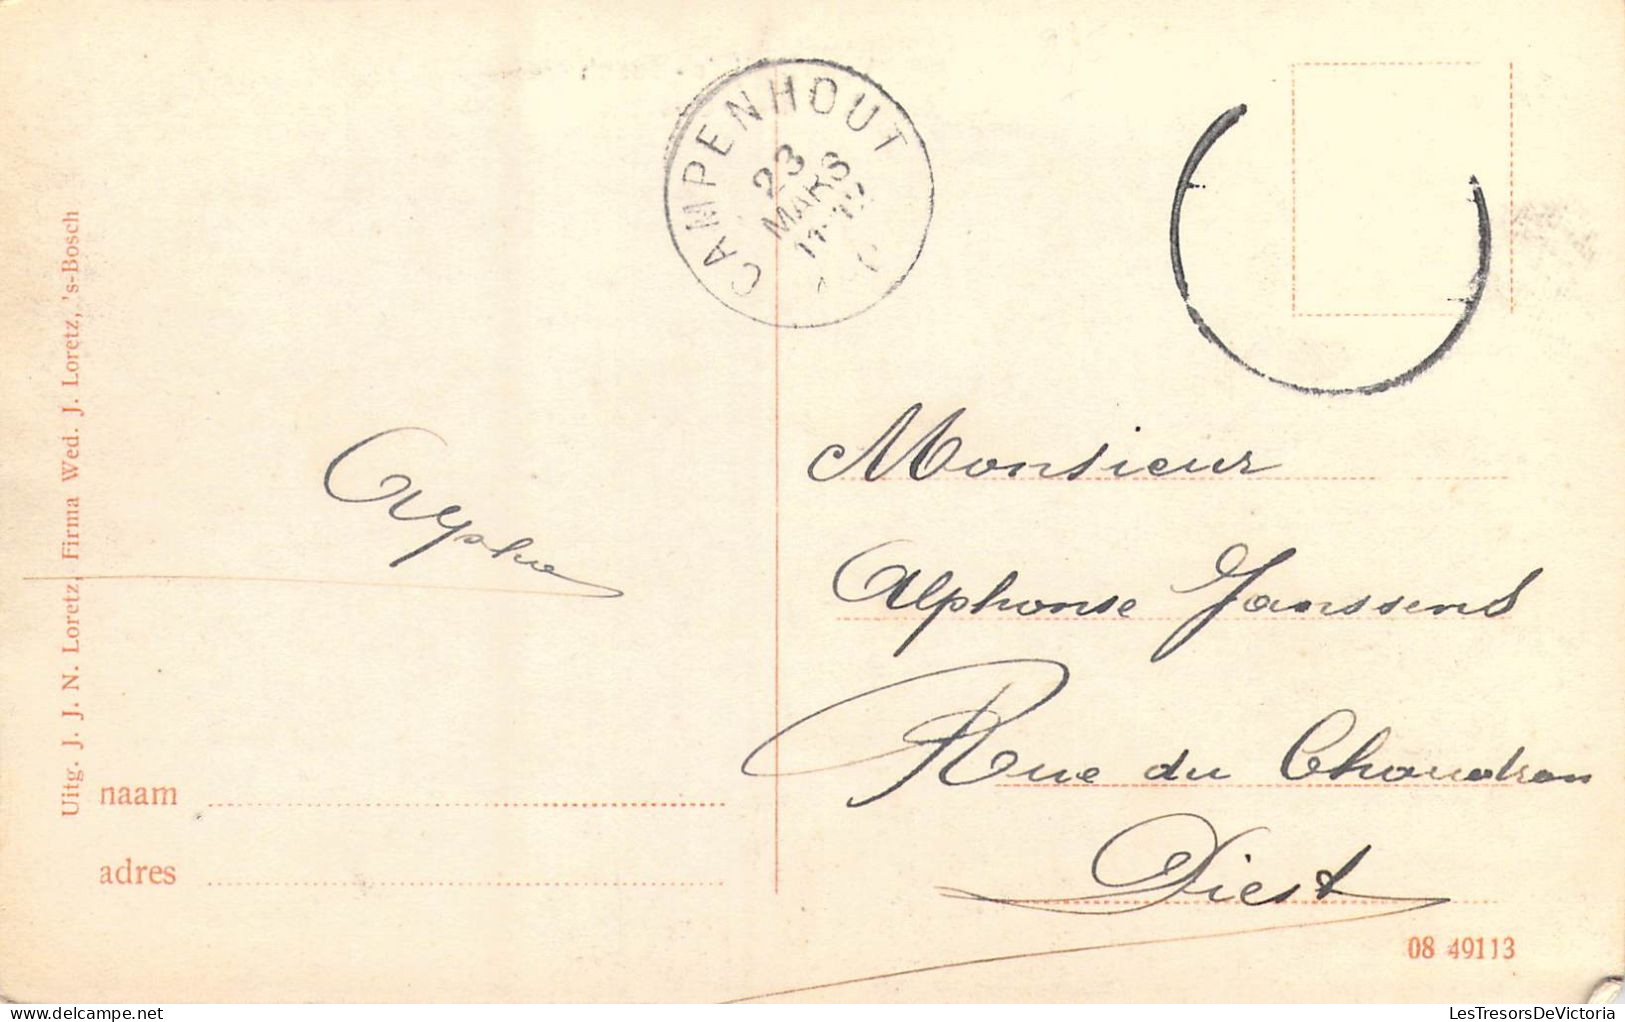 CAMPENHOUT
23
MARS
11-12
Uitg. J. J. N. Loretz, Firma Wed. J. Loretz, 's-Bosch
Monsieur
Alphonse Janssens
Rue du Chaudron
Diest
naam
adres
08 49113
LesTresorsDeVictoria